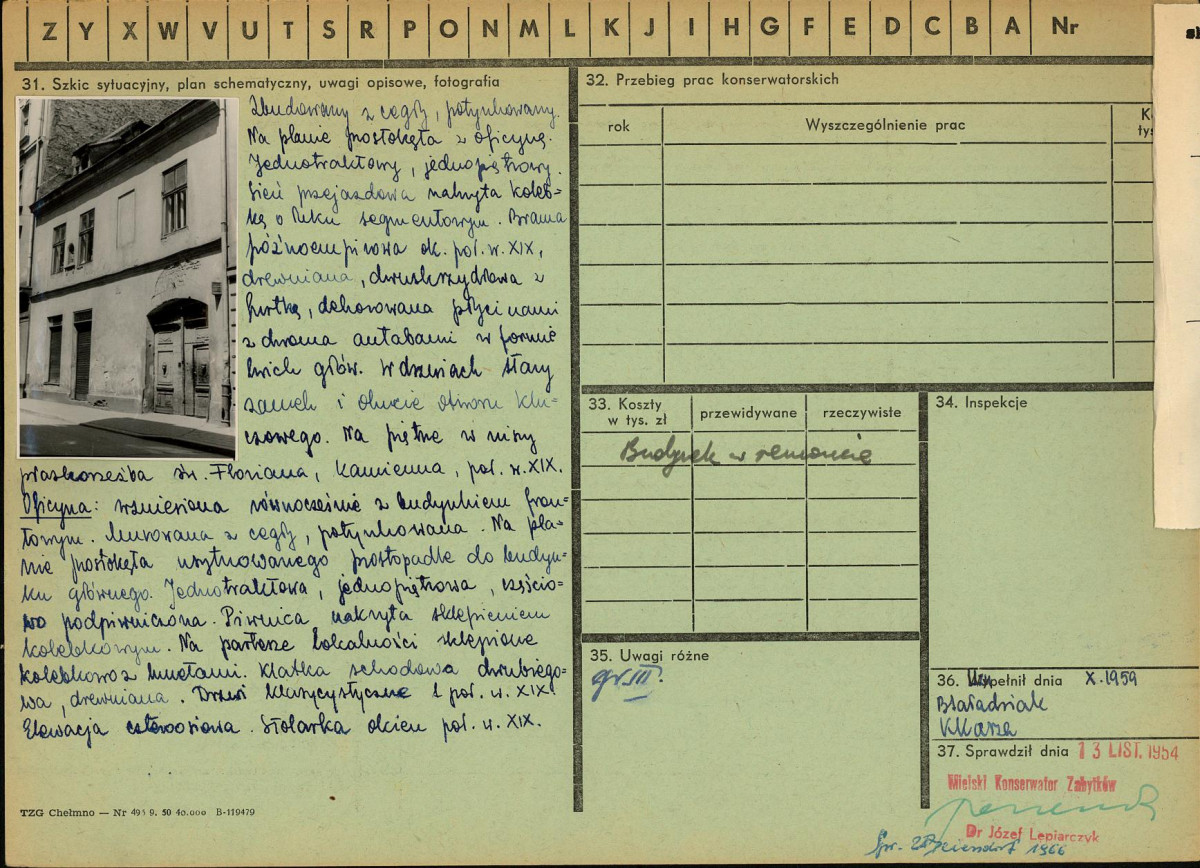 Z Y X W V U T S R P O N M L K J I H G F E D C B A Nr
31. Szkic sytuacyjny, plan schematyczny, uwagi opisowe, fotografia
Zbudowany z cegły, potynkowany.
Na planie prostokąta z oficyną.
Jednotraktowy, jednopiętrowy.
Sień przejazdowa nakryta koleb-
ką o łuku segmentowym. Brama
późnoempirowa ok. poł. w. XIX,
drewniana, dwuskrzydłowa z
furtką, dekorowana płycinami
z dwoma antabami w formie
lwich głów. W drzwiach stary
zamek i okucie otworu klu-
czowego. Na piętrze w niszy
płaskorzeźba św. Floriana, kamienna, poł. w. XIX.
Oficyna: wzniesiona równocześnie z budynkiem fron-
towym. Murowana z cegły, potynkowana. Na pla-
nie prostokąta usytuowanego prostopadle do budyn-
ku głównego. Jednotraktowa, jednopiętrowa, częścio-
wo podpiwniczona. Piwnica nakryta sklepieniem
kolebkowym. Na parterze lokalności sklepione
kolebkowo z lunetami. Klatka schodowa dwubiego-
wa, drewniana. Drzwi klasycystyczne 1 poł. w. XIX.
Elewacja czteroosiowa. Stolarka okien poł. w. XIX.
TZG Chełmno — Nr 495 9. 50 40.000 B-119479
32. Przebieg prac konserwatorskich
rok Wyszczególnienie prac
33. Koszty
w tys. zł przewidywane rzeczywiste
Budynek w remoncie
34. Inspekcje
35. Uwagi różne
gr. III.
36. Wypełnił dnia X.1959
37. Sprawdził dnia 13 LIST. 1954
Miejski Konserwator Zabytków
Dr Józef Lepiarczyk
1966